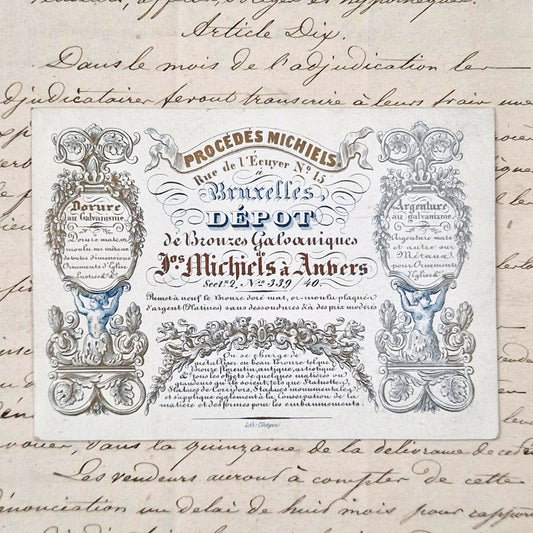 Article Dix.
Dans le mois de l'adjudication les
adjudicataires feront transcrire à leurs frais une
PROCÉDÉS MICHIELS.
Rue de l'Ecuyer No 15
à
Bruxelles,
DÉPOT
de Bronzes Galvaniques
de
Jos Michiels à Anvers
Sectn 2, Nos 339 / 40.
Remet à neuf le bronze doré mat, or-moulu plaqué
d'argent (Platines) sans dessoudures & à des prix modérés
Dorure
au Galvanisme.
Dorure mate, or
moulu sur métaux
de toutes dimensions
Ornements d'Eglise
Lustres &a
Argenture
au galvanisme.
Argenture mate
et autre sur
Métaux,
pour Ornements
d'Eglise &a
On se charge de
métalliser en beau Bronze tel que
Bronze florentin, antique, artistique
&a tous les objets de quelques matières ou
grandeurs qu'ils soient, tels que Statuettes,
Statues de Corridors, Statues monumentales,
et s'applique également à la Conservation de la
matière et des formes pour les embaumements.
Lith.
dans la quinzaine de la délivrance de
Les vendeurs auront à compter de cette
dénonciation un délai de huit mois pour rapporter